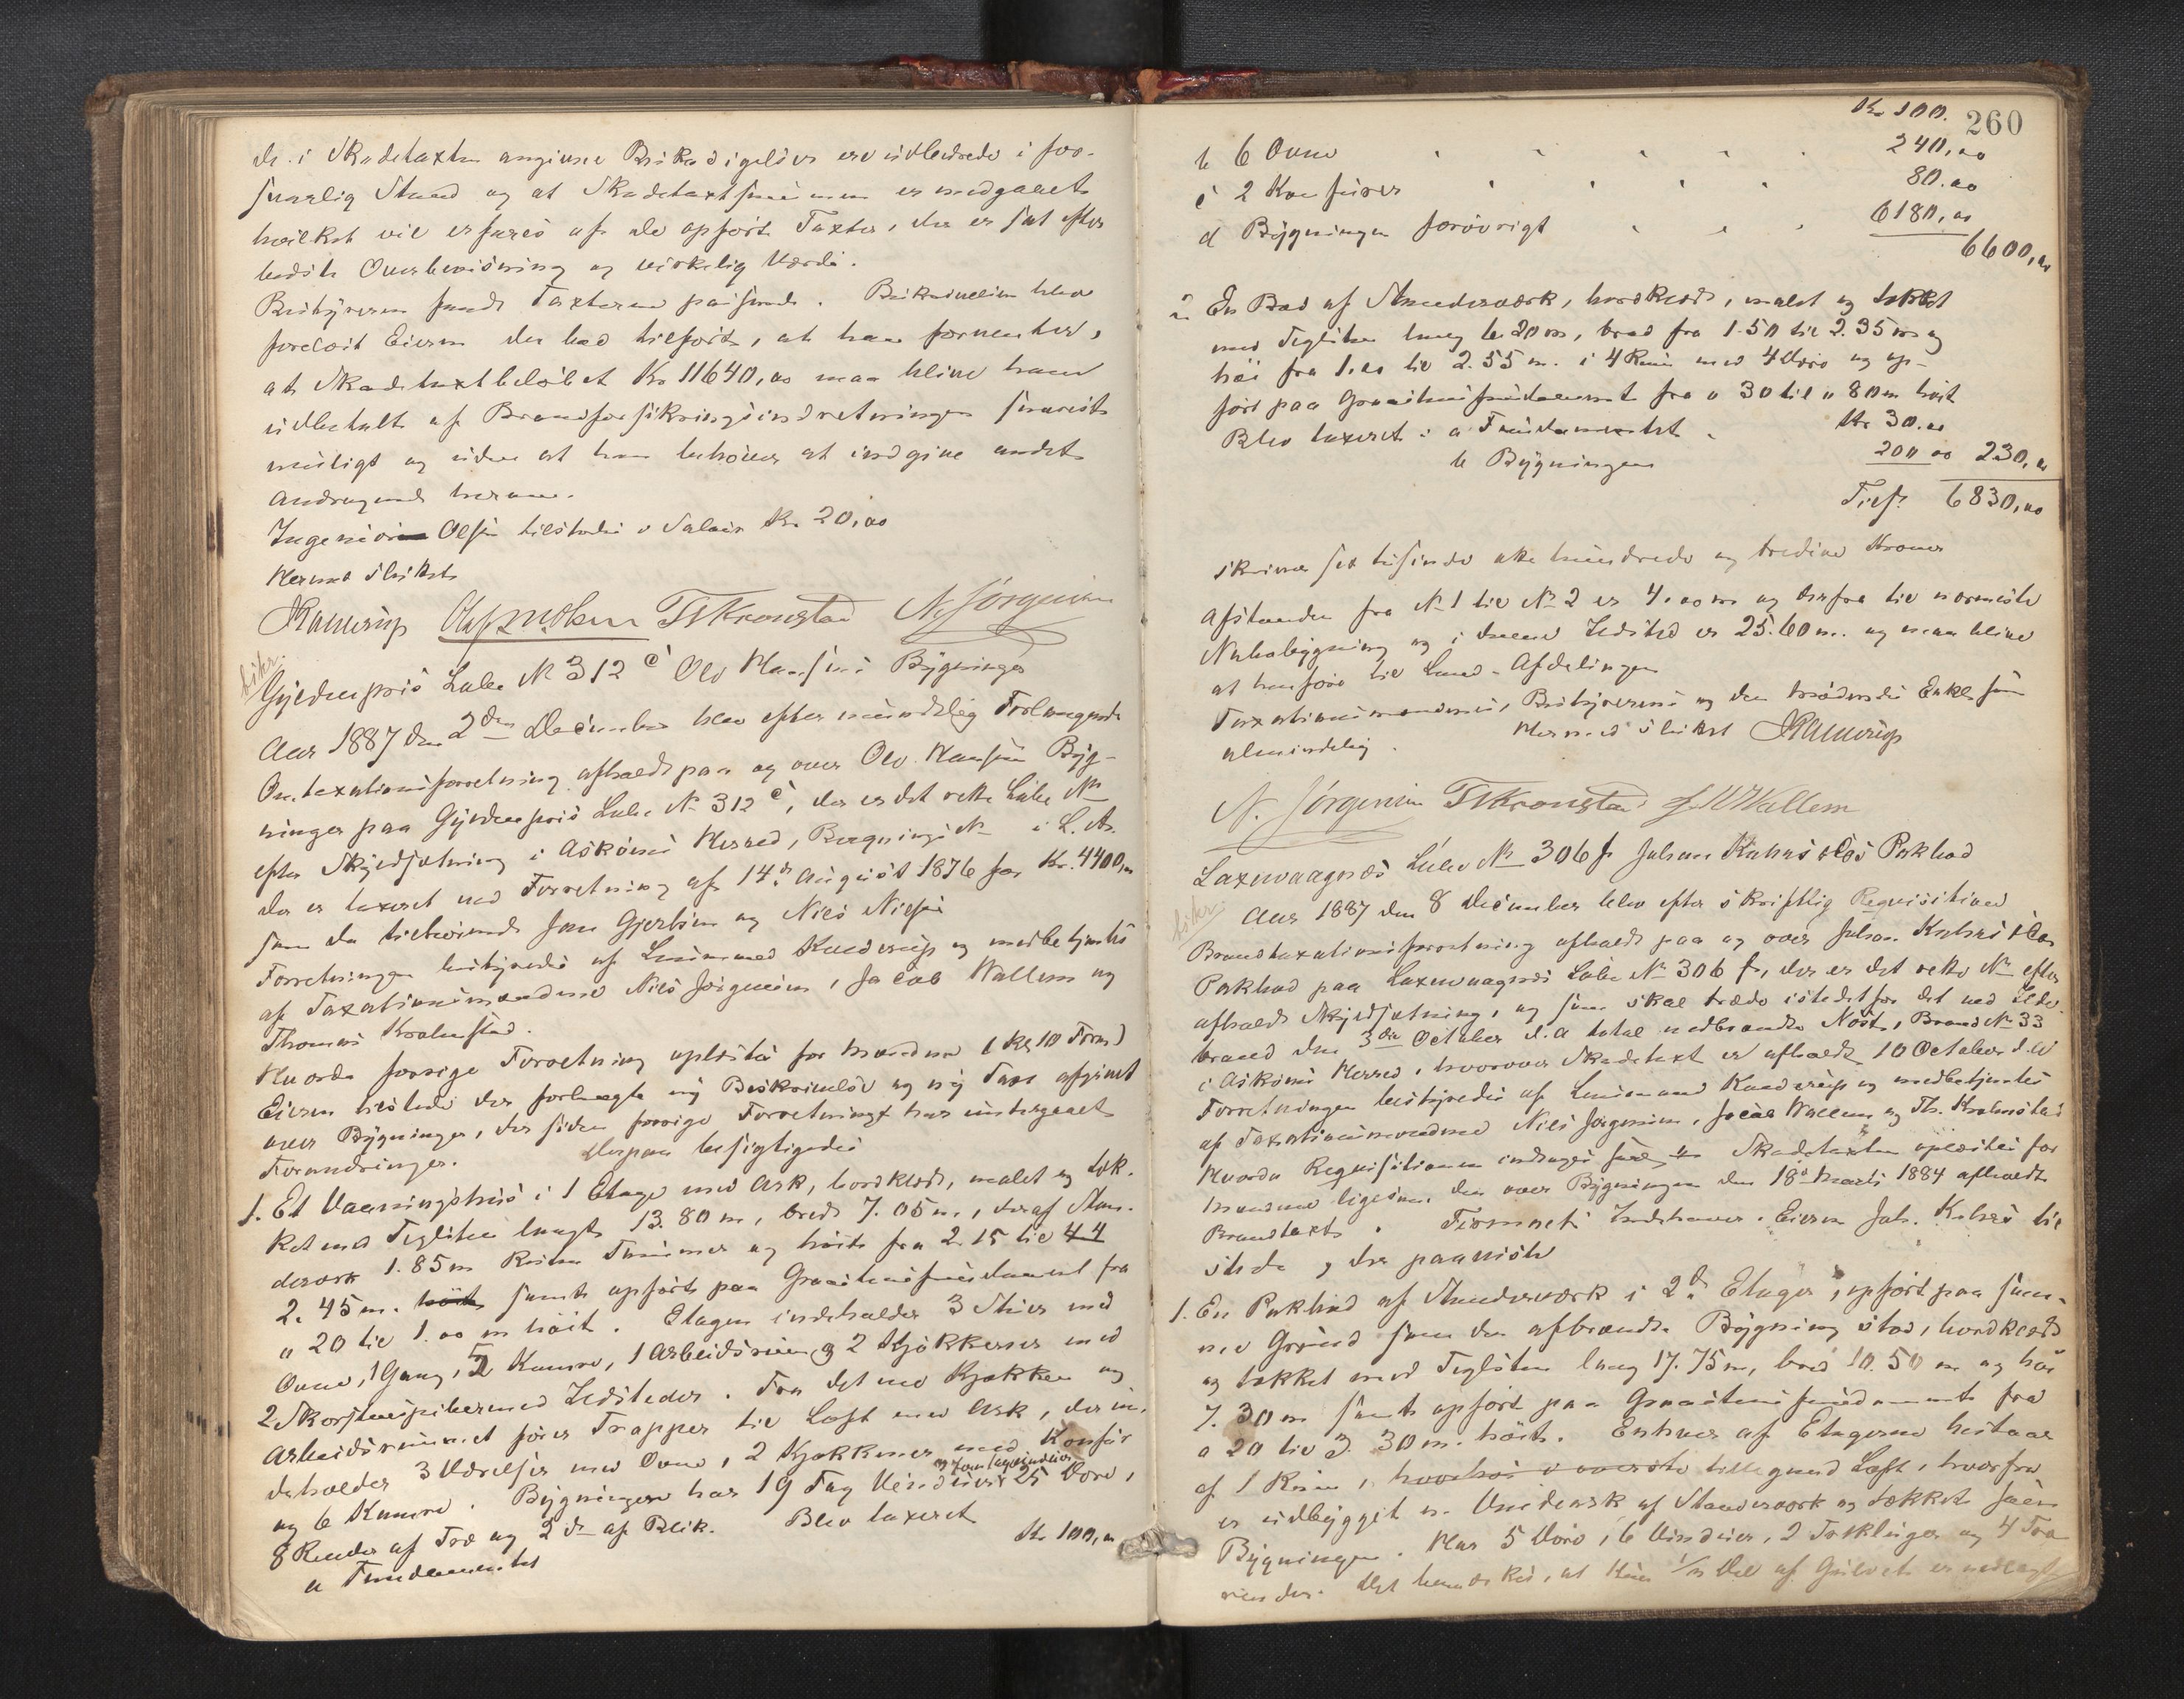 de i Skadetaxten angivne Beskadigelser ere udbedrede i for-
svarlig Stand og at Skadetaxtsummen er medgaaet
hvilket vil erfares af de opførte Taxter, der er sat efter
bedste Overbevisning og virkelig Værdi.
Bestyreren fandt Taxterne passende. Beskrivelsen blev
forelæst Eieren der bad tilført, at han formenter,
at Skadetaxtbeløbet Kr 11640,00 maa blive ham
udbetalt af Brandforsikringsindretningen snarest
muligt og uden at han behøver at indgive andet
Andragende herom.
Ingeniør Olsen tilstodes i Salair Kr. 20,00
Hermed sluttet
JKaurup Olaf M Olsen Th Kronstad N. Jørgensen
Gyldenpris Løbe No 312 c Ole Hansens Bygninger
Aar 1887 den 2den December blev efter mundtlig Forlangende
Omtaxationsforretning afholdt paa og over Ole Hansens Byg-
ninger paa Gyldenpris Løbe No 312 c, der er det rette Løbe No
efter Skyldsætning i Askøens Herred, Bergnings No i L. A.
der er taxeret ved Forretning af 14de August 1876 for Kr. 4400,00
som da tilhørende Jens Gjertsen og Nils Nilsen
Forretningen bestyredes af Lensmand Kaurup og medbetjentes
af Taxationsmændene Nils Jørgensen, Jacob Wallem og
Thomas Kronstad.
Hvorda forrige Forretning oplæstes for Mændene
Eieren tilstede der forlangte ny Beskrivelse og ny Taxt afgivet
over Bygninger, der siden forrige Forretning har undergaaet
Forandringer. Derpaa besigtigedes
1. Et Vaaningshus i 1 Etage med Ark, bordklædt, malet og tæk-
ket med Teglsten langt 13.80 m, bredt 7.05 m, deraf Sten-
derverk 1.85 m Resten Tømmer og høit fra 2.15 til 44
2.45 m. høit samt opført paa Graastensfundament fra
0 20 til 1.00 m høit. Etagen indeholder 3 Stuer med
Ovne, 1 Gang, 2 Kamre, 1 Arbeidsrum og 2 Kjøkkener med
2 Skorstenspiber med Ildsteder. Fra det ene Kjøkken og
Arbeidsrummet fører Trapper til Loft med Ark, der in-
deholder 3 Værelser med Ovne, 2 Kjøkkener med Komfur
og 6 Kamre. Bygningen har 19 Fag Vinduer 25 Døre,
8 Render af Træ og 2 do af Blik. Blev taxeret
a Fundamentet Kr 100,00
260
Kr 100.
b 6 Ovne 240,00
c 2 Komfurer 80.00
d Bygningen forøvrigt 6180,00
6600,00
2 En Bod af Stenderværk, bordklædt, malet og tækket
med Teglsten lang 6.20 m, bred fra 1.50 til 2.35 m og
høi fra 1.00 til 2.55 m. i 4 Rum med 4 Døre og op-
ført paa Graastensfundament fra 0 30 til 0 80 m høit
Blev taxeret: a Fundamentet Kr 30.00
b Bygningen 200 00 230,00
Tils. 6830,00
skriver sex tusinde otte hundrede og tredive Kroner
Afstanden fra No 1 til No 2 er 4.00 m og derfra til nærmeste
Nabobygning og i denne Ildsted er 25.60 m. og maa blive
at henføre til Land-Afdelingen
Taxationsmændenes, Bestyrerens og den
almindelig. Hermed sluttet JKaurup
N. Jørgensen Th Kronstad J. W Wallem
Laxevaagnæs Løbe No 306 f Johan Kahrs & Cos Pakbod
Aar 1887 den 8 December blev efter skriftlig Requisition
Brandtaxationsforretning afholdt paa og over Johan Kahrs & Cos
Pakbod paa Laxevaagnæs Løbe No 306 f, der er det rette No efter
afholdt Skyldsætning, og som skal træde istedetfor det ved Ilde-
brand den 3die October d. A total nedbrændte Nøst, Brand No 33
i Askøens Herred, hvorover Skadetaxt er afholdt 10 October d. A
Forretningen bestyredes af Lensmand Kaurup og medbetjentes
af Taxationsmændene Nils Jørgensen, Jacob Wallem og Th. Kronstad
Hvorda Requisitionen indtages Skadetaxten oplæstes for
Mændene ligesom den over Bygningen den 18de Marts 1884 afholdte
Brandtaxt. Firmaets Indehaver. Eieren Joh. Kahrs til
stede, der paaviste
1. En Pakbod af Stenderværk i 2de Etager, opført paa sam-
me Grund som den afbrændte Bygning stod, bordklædt
og tækket med Teglsten lang 17.75 m, bred 10.50 m og høi
7.30 m samt opført paa Graastensfundament fra
0 20 til 3.30 m. høit. Enhver af Etagerne bestaar
af 1 Rum, hvorhos i øverste tillegnæd Loft, hvorfra
er udbygget en Vindeark af Stenderværk og tækket som
Bygningen. Har 5 Døre, 6 Vinduer, 2 og 4 Træ
render. Det bemærkes, at kun Del af Gulvet er nedlagt